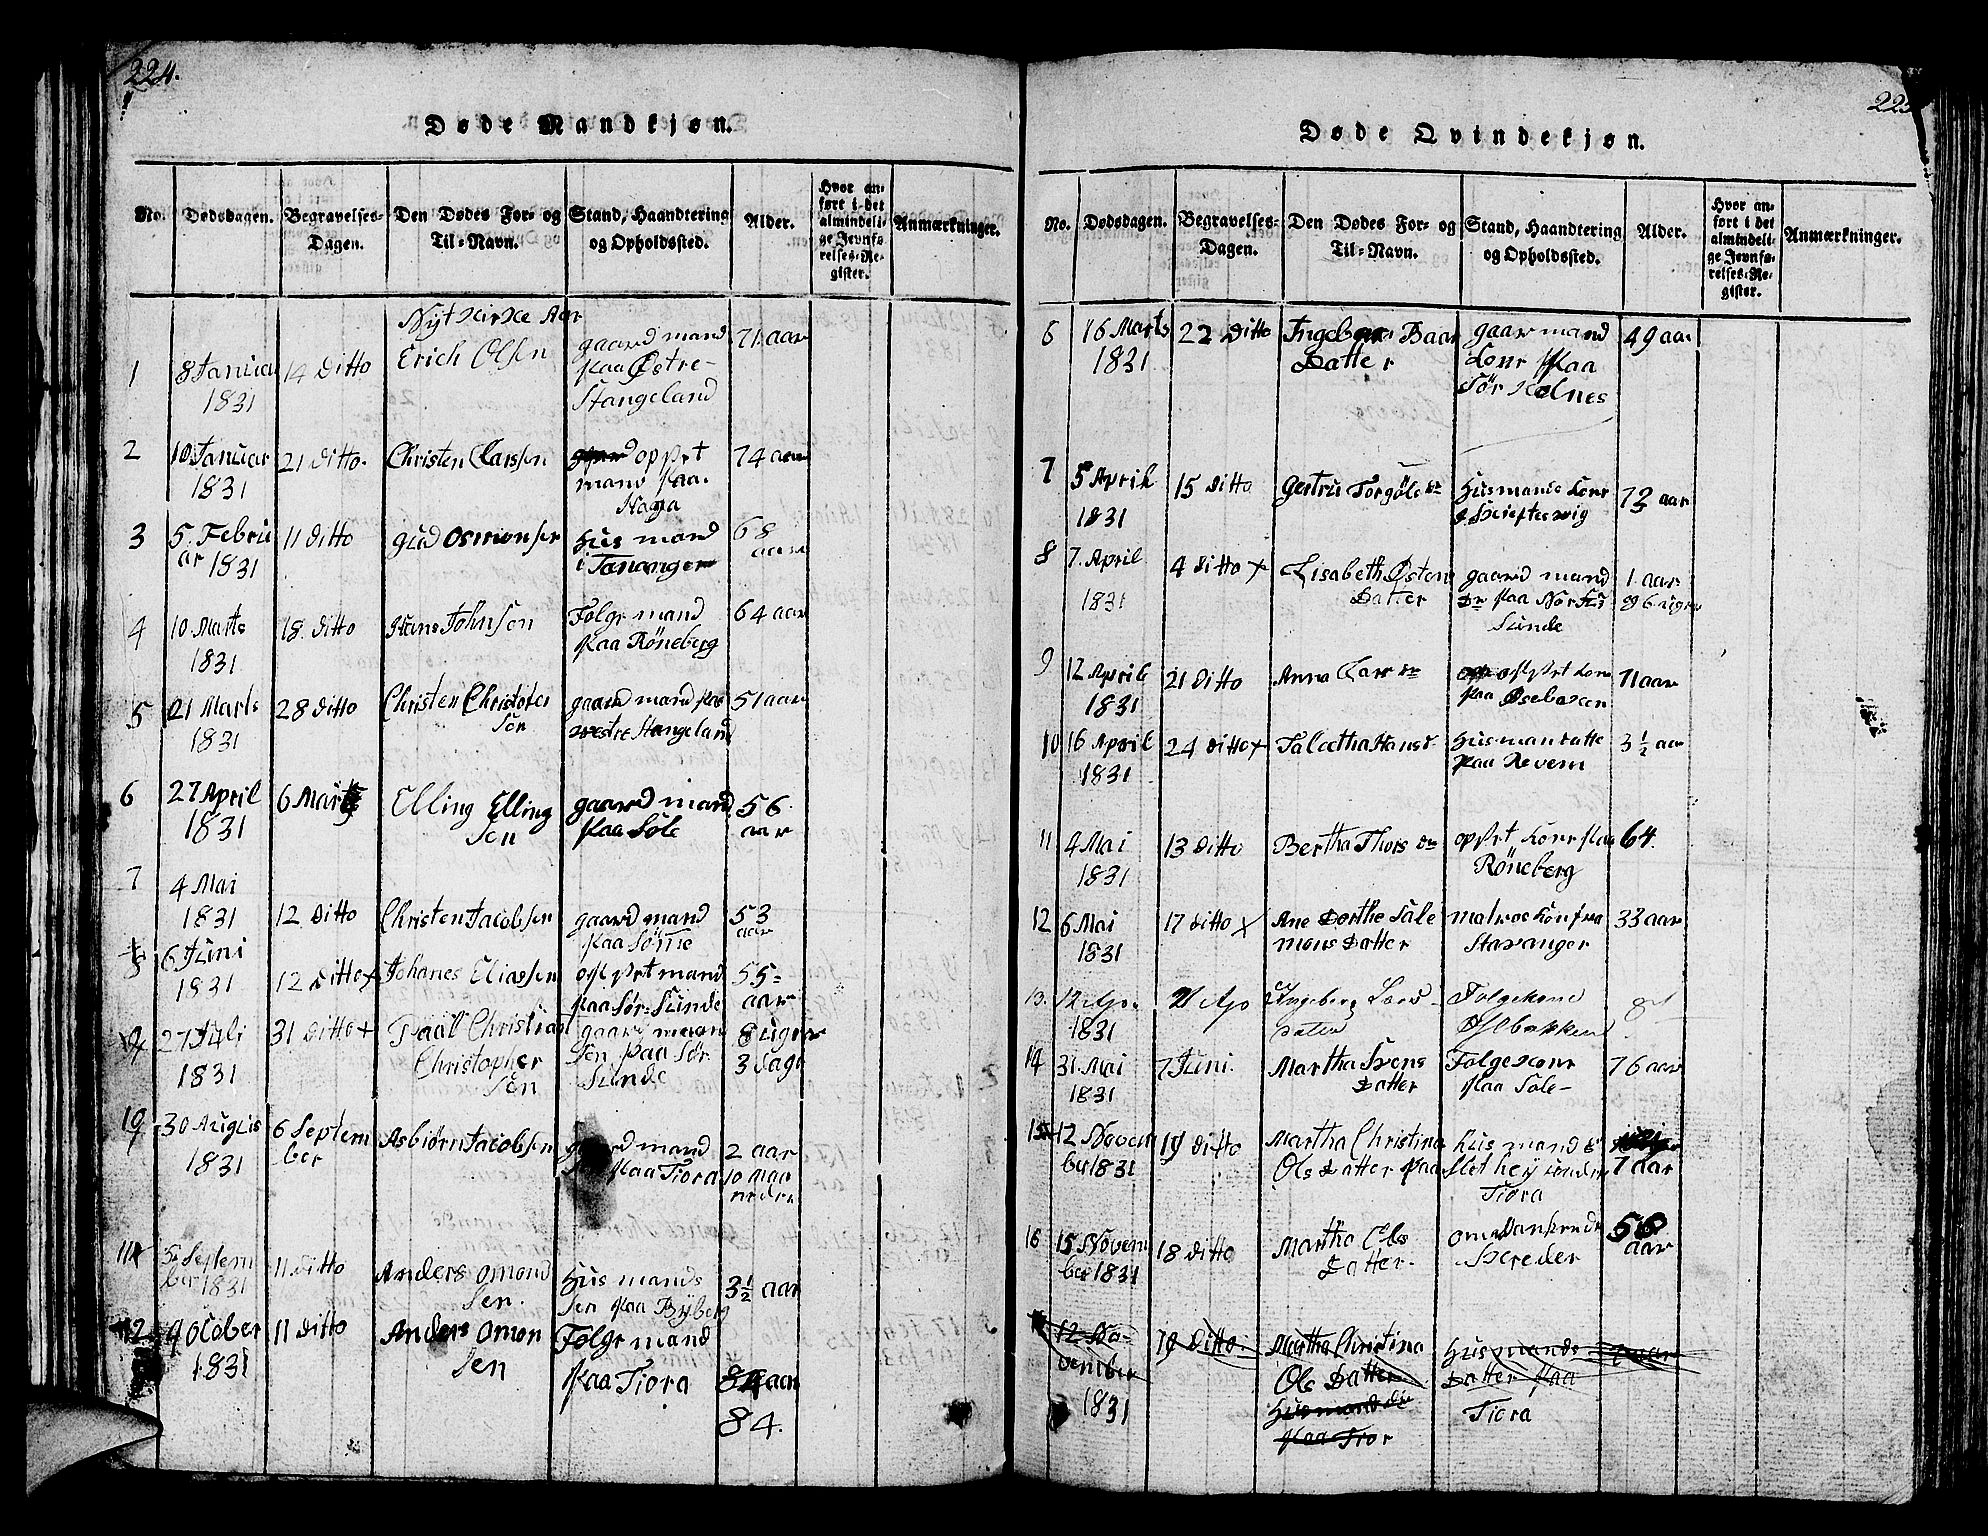 224.
Døde Mandkjøn.
No. Dødsdagen. Begravelses-Dagen. Den Dødes For- og Til-Navn. Stand, Haandtering og Opholdssted. Alder. Hvor anført i det almindelige Jevnførelses-Register. Anmærkninger.
Nyt Kirke Aar
1 8 Januar 1831 14 Ditto Erich Olsen gaard mand paa Østre-Stangeland 71 aar
2 10 Januar 1831 21 Ditto. Christen Larssen opsyt mand paa Haga 74 aar
3 5. Februar 1831 11 Ditto Gud Osmonsen Hus mand i Tananger 68 aar
4 10. Marts 1831 18. Ditto Hans Johnsen Folge mand paa Röneberg 64 aar
5 21 Marts 1831 28 Ditto Christen Christofer Sön gaard mand paa westre Stangeland 51 aar
6 27 April 1831 6 Elling Elling Sen gaard mand paa Söle 56 aar
7 4 Mai 1831 12 Ditto Christen Jacobsen gaard mand paa Sömme 53 aar
8 6 Juni 1831 12 Ditto + Johanes Eliassen opsyt mand paa Sör-Sunde 55 aar
9 27 Juli 1831 31 Ditto + Paal Christian Christopher Sen gaard mann Sen paa Sör Sunde 8 uger 3 dage
10 30 Augus 1831 6 September Asbiørn Jacobsen gaard mand paa Tiora 2 aar 10 maaneder
11 5 September 1831 11 Ditto Anders Omond Sen. Hus mands Sen paa Byberg 3½ aar
12 9 October 1831 11 Ditto Anders Omon Sen Folge mand paa Tiora 84 aar
84.
225
Døde Qvindekjøn.
No. Dødsdagen. Begravelses-Dagen. Den Dødes For- og Til-Navn. Stand, Haandtering og Opholdssted. Alder. Hvor anført i det almindelige Jevnførelses-Register. Anmærkninger.
6 16 Marts 1831 22 Ditto Ingebor Baar Datter gaar mand Kone paa Sör Kolnes 49 aar
7 5 April 1831 15 Ditto Gertru Torgöls Dr Husmands Kone 72 aar
8 7. April 1831 4 Ditto + Lisabeth Østens Datter gaard mand Dr paa Nortsunde 1. aar og 6 uger
9 12 April 1831 21 Ditto Anna Lars Dr opsyt Kone paa Øsebaken 71 aar
10 16 April 1831 24 Ditto + Taletha Hans d. Husman datte paa Revem 3½ aar
11 4 Mai 1831 13 Ditto Bertha Thors Dr opsyt Kone paa Röneberg 64.
12 6 Mai 1831 17 Ditto + Ane Dorthe Salemons Datter matros Kon fra Stavanger 33 aar
13. 12 Apr. 1831 21 Apr Ingeborg Lars datter Folgekone Øsebakken
14 31. Mai 1831 7 Juni. Martha Svens Datter Folgekone paa Sole- 76 aar
15 12 November 1831 19 Ditto Martha Christina Ols Datter paa Hus mand Slethey under Tiora 7 aar
16 15 November 1831 18 Ditto Martha Ols Datter. omvankende 56 aar
12 November 1831 19 Ditto Martha Christina Ols Datter Husmand Dr paa Tior Husmands Datter paa Tiora